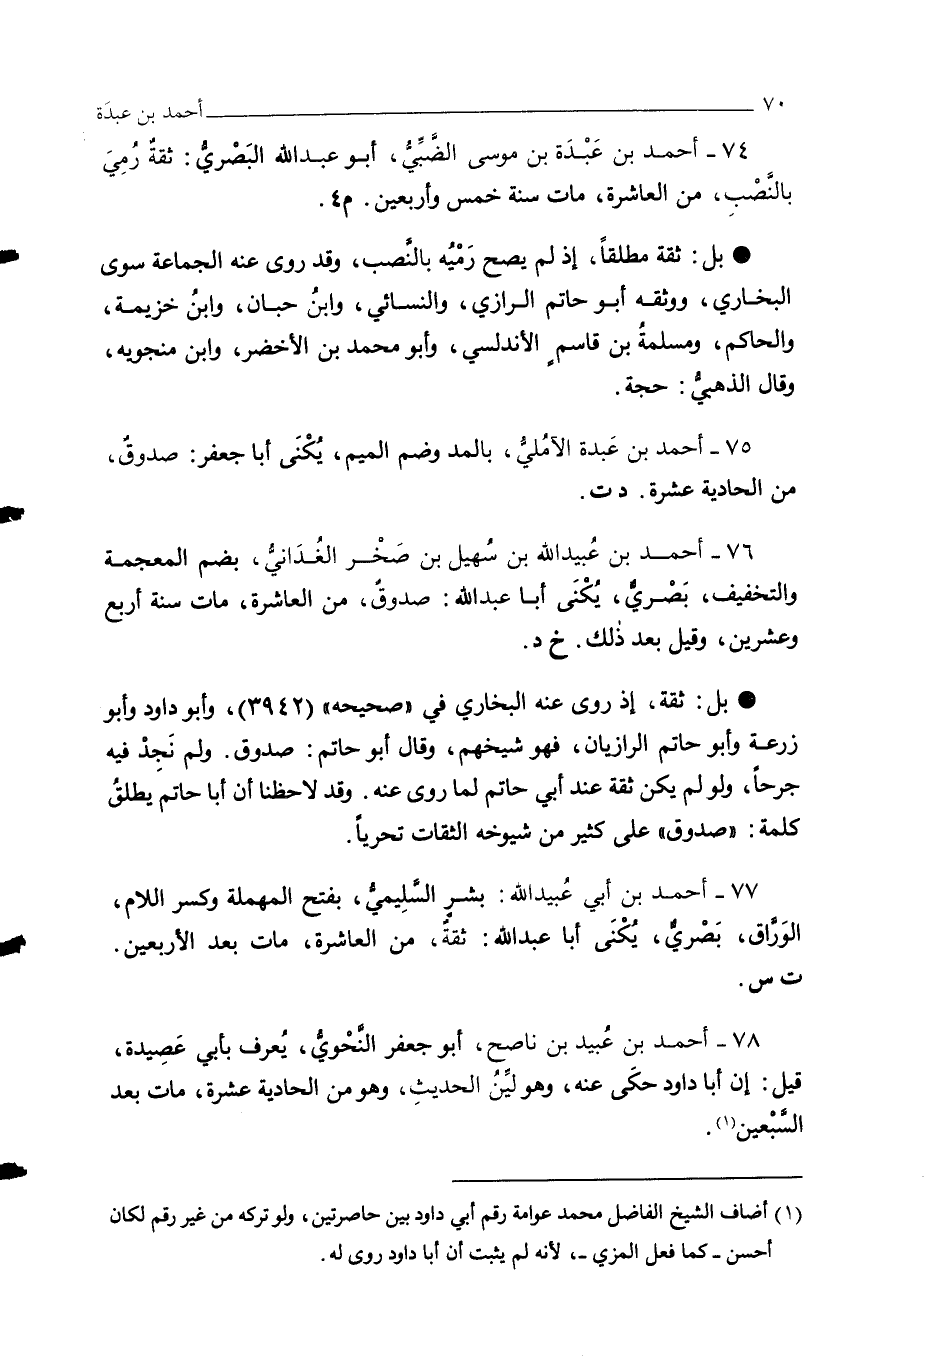 ٧٠ أحمد بن عبدَة
٧٤ ـ أحمد بن عَبْدَة بن موسى الضَّبِّيُّ، أبو عبدالله البَصْريُّ: ثقةٌ رُمِيَ
بالنَّصْبِ، من العاشرة، مات سنة خمس وأربعين. م٤.
● بل: ثقة مطلقاً، إذ لم يصح رَمْيُه بالنَّصب، وقد روى عنه الجماعة سوى
البخاري، ووثقه أبو حاتم الرازي، والنسائي، وابنُ حبان، وابنُ خزيمة،
والحاكم، ومسلمةُ بن قاسمٍ الأندلسي، وأبو محمد بن الأخضر، وابن منجويه،
وقال الذهبيُّ: حجة.
٧٥ ـ أحمد بن عَبدة الآمُليُّ، بالمد وضم الميم، يُكْنَى أبا جعفر: صدوقٌ،
من الحادية عشرة. د ت.
٧٦ ـ أحمد بن عُبيدالله بن سُهيل بن صَخْر الغُدَانيُّ، بضم المعجمة
والتخفيف، بَصْريٌّ، يُكْنَى أبا عبدالله: صدوقٌ، من العاشرة، مات سنة أربع
وعشرين، وقيل بعد ذٰلك. خ د.
● بل: ثقة، إذ روى عنه البخاري في «صحيحه» (٣٩٤٢)، وأبو داود وأبو
زرعة وأبو حاتم الرازيان، فهو شيخهم، وقال أبو حاتم: صدوق. ولم نَجِدْ فيه
جرحاً، ولو لم يكن ثقة عند أبي حاتم لما روى عنه. وقد لاحظنا أن أبا حاتم يطلقُ
كلمة: «صدوق» على كثير من شيوخه الثقات تحرياً.
٧٧ ـ أحمد بن أبي عُبيدالله: بشرٍ السَّلِيميُّ، بفتح المهملة وكسر اللام،
الوَرَّاق، بَصْريٌّ، يُكْنَى أبا عبدالله: ثقةٌ، من العاشرة، مات بعد الأربعين.
ت س.
٧٨ ـ أحمد بن عُبيد بن ناصح، أبو جعفر النَّحْويُّ، يُعرف بأبي عَصِيدة،
قيل: إن أبا داود حكَى عنه، وهو ليِّنُ الحديثِ، وهو من الحادية عشرة، مات بعد
السَّبْعين(١).
(١) أضاف الشيخ الفاضل محمد عوامة رقم أبي داود بين حاصرتين، ولو تركه من غير رقم لكان
أحسن ـ كما فعل المزي ـ، لأنه لم يثبت أن أبا داود روى له.